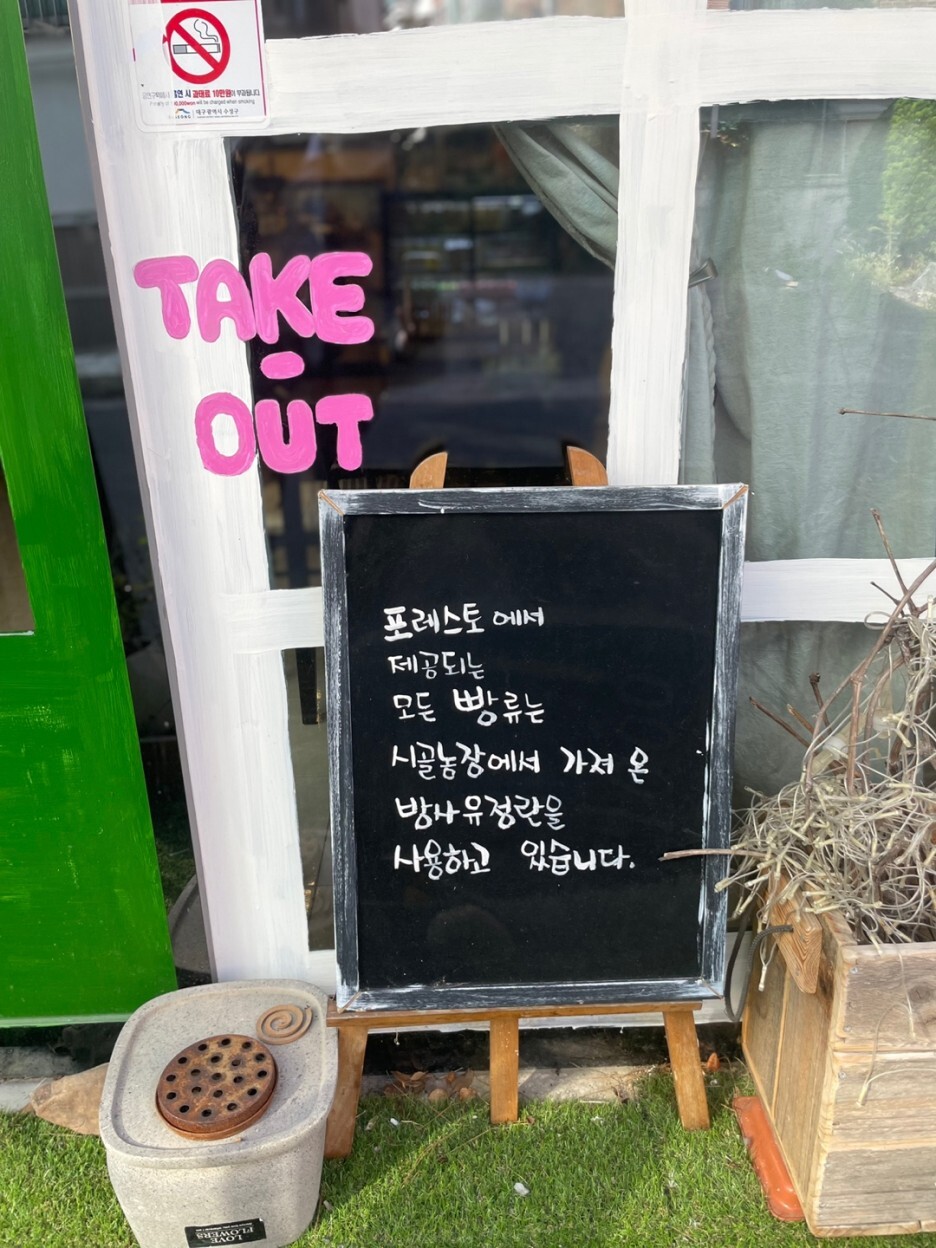 시 과태료 10만원이 부과됩니다
will be charged when smoking
대구광역시 수성구
TAKE
-
OUT
포레스토에서
제공되는
모든 빵류는
시골농장에서 가져 온
방사유정란을
사용하고 있습니다.
LOVE
FLOWERS